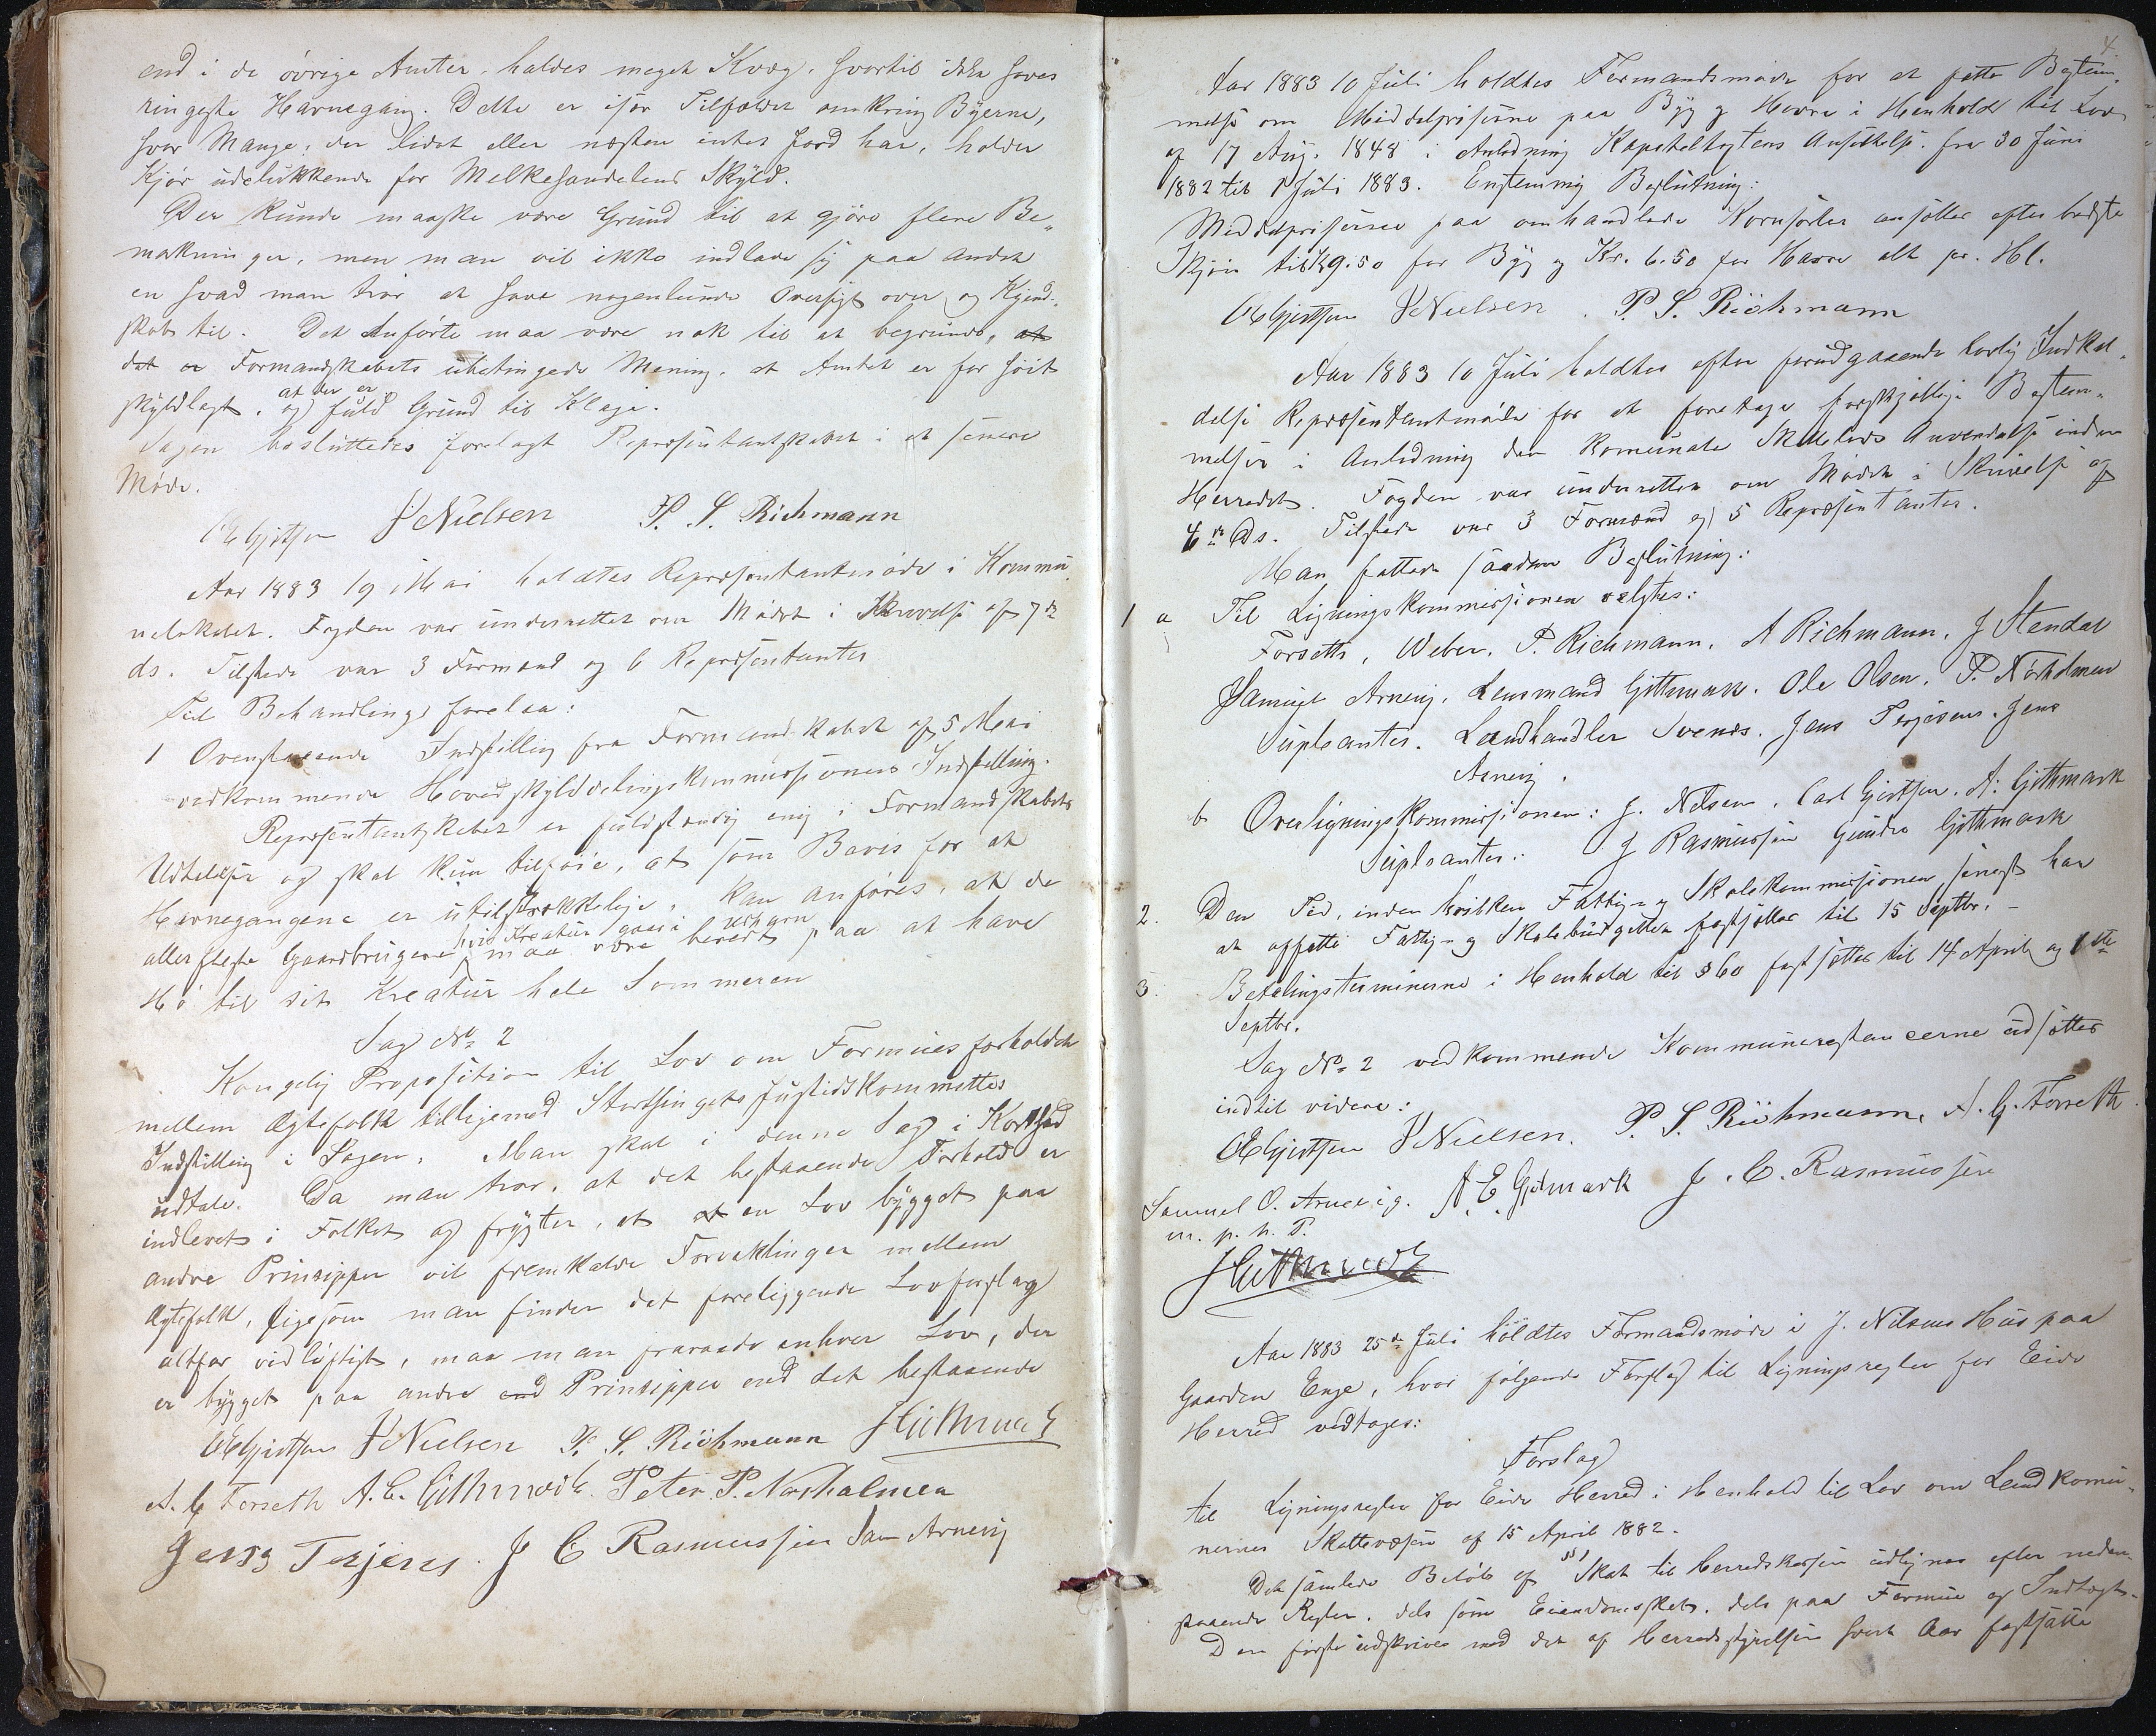 end i de øvrige Amter, haldes meget Kvæg, hvortil ikke haves
ringeste Havnegang. Dette er især Tilfældet omkring Byerne,
hvor Mange, der lidet eller næsten intet Jord har, holder
Kjør udelukkende for Melkehandelens Skyld.
Der kunde maaske være Grund til at gjøre flere Be„
mækninger, men man vil ikke indlade sig paa andet
en hvad man tror at have nogenlunde Oversigt over og Kjend„
skab til. Det Anførte maa være nok til at begrunde, at
det er Formandskabets ubetingede Mening, at Amtet er for høit
skyldlagt, og at der er fuld Grund til Klage.
Sagen besluttedes forelagt Repræsentantskabet i et senere
Møde.
OE Gjertsen JNielsen P. S. Richmann
Aar 1883 19 Mai holdtes Repræsentantmøde i Kommu
nelokalet. Fogden var underrettet om Mødet i Skrivelse af 7de
ds. Tilstede var 3 Formænd og 6 Repræsentanter
Til Behandling forelaa:
1 Ovenstaaende Indstilling fra Formandskabet af 5 Mai
vedkommende Hovedskylddelingskommissionens Indstilling.
Repræsentantskabet er fuldstændig enig i Formandskabets
Udtalelser og skal kun tilføie, at som Bevis for at
Havnegangene er utilstrækkelige, kan anføres, at de
allerfleste Gaardbrugere, hvis Kreatur gaar i Udhavn maa være beredt paa at have
Hø til sit Kreatur hele Sommeren
Sag No 2
Kongelig Proposition til Lov om Formuesforholdet
mellem Ægtefolk tilligemed Storthingets Justidskommittes
Indstilling i Sagen. Man skal i denne Sag i Korthed
udtale. Da man tror, at det bestaaende Forhold er
indlevet i Folket og frygter, at en Lov bygget paa
andre Prinsipper vil fremkalde Forviklinger mellem
Ægtefolk, ligesom man finder det foreliggende Lovforslag
altfor vidløftigt, maa man fraraade enhver Lov, der
er bygget paa andre end Prinsipper end det bestaaende
OE Gjertsen JNielsen P. S. Richmann JGithmark
A. G Forseth A. E. Githmark. Peter P. Nørholmen
Jens Terjesen. J C Rasmussen Sam Arnevig
4.
Aar 1883 10 Juli holdtes Formandsmøde for at fatte Bestem„
melse om Middelpriserne paa Byg og Havre i Henhold til Lov
af 17 Aug. 1848 i Anledning Kapiteltagtens Ansættelse fra 30 Juni
1882 til 1 Juli 1883. Enstemmig Beslutning:
Middelpriserne paa omhandlede Kornsorter ansættes efter bedste
Skjøn til Kr 9.50 for Byg og Kr. 6.50 for Havre alt pr. Hl.
OE Gjertsen JNielsen. P. S. Richmann
Aar 1883 10 Juli holdtes efter forudgaaende lovlig Indkal„
delse Repræsentantmøde for at foretage forskjellige Bestem„
melser i Anledning den komunale Skattelovs Anvendelse inden
Herredet. Fogden var underrettet om Mødet i Skrivelse af
4de Ds. Tilstede var 3 Formænd og 5 Repræsentanter.
Man fattede saadan Beslutning:
1 a Til Ligningskommissionen valgtes:
Forseth, Weber, P. Richmann, A Richmann, J Stendal
Samuel Arnevig, Lensmand Githmark, Ole Olsen, P. Nørholmen
Supleanter. Landhandler Svenes. Jens Terjesen. Jens
Arnevig.
b Overligningskommissionen: J. Nilsen, Carl Gjertsen, A. Githmark
Supleanter: J Rasmussen Gunder Githmark
2. Den Tid, inden hvilken Fattig- og Skolekommissionen senest har
at opsætte Fattig- og Skolebudgettet fastsættes til 15 Septbr. –
3. Betalingsterminerne i Henhold til § 60 fastsættes til 14 April og 1ste
Septbr.
Sag No 2 vedkommende Kommunerestancerne udsættes
indtil videre:
OE Gjertsen JNielsen. P. S. Richmann, A. G. Forseth
Samuel O. Arnevig. A. E. Gitmark J. C. Rasmussen
m. p. h. P.
JGithmark
Aar 1883 25de Juli holdtes Formandsmøde i J. Nilsens Hus paa
Gaarden Enge, hvor følgende Forslag til Ligningsregler for Eide
Herred vedtages:
Forslag
til Ligningsregler for Eide Herred i Henhold til Lov om Landkomu„
nernes Skattevæsen af 15 April 1882.
§ 1
Det samlede Beløb af Skat til Herredskassen udlignes efter neden„
staaende Regler, dels som Eiendomsskat, dels paa Formue og Indtægt.
Den første udskrives med det af Herredsstyrelsen hvert Aar fastsatte